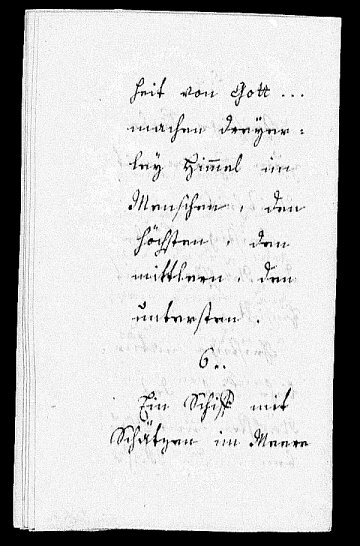 heit von Gott ...
machen dreyer=
ley Himmel im
Menschen, den
höchsten, den
mittlern, den
untersten.
6..
Ein Schiff mit
Schätzen im Meere